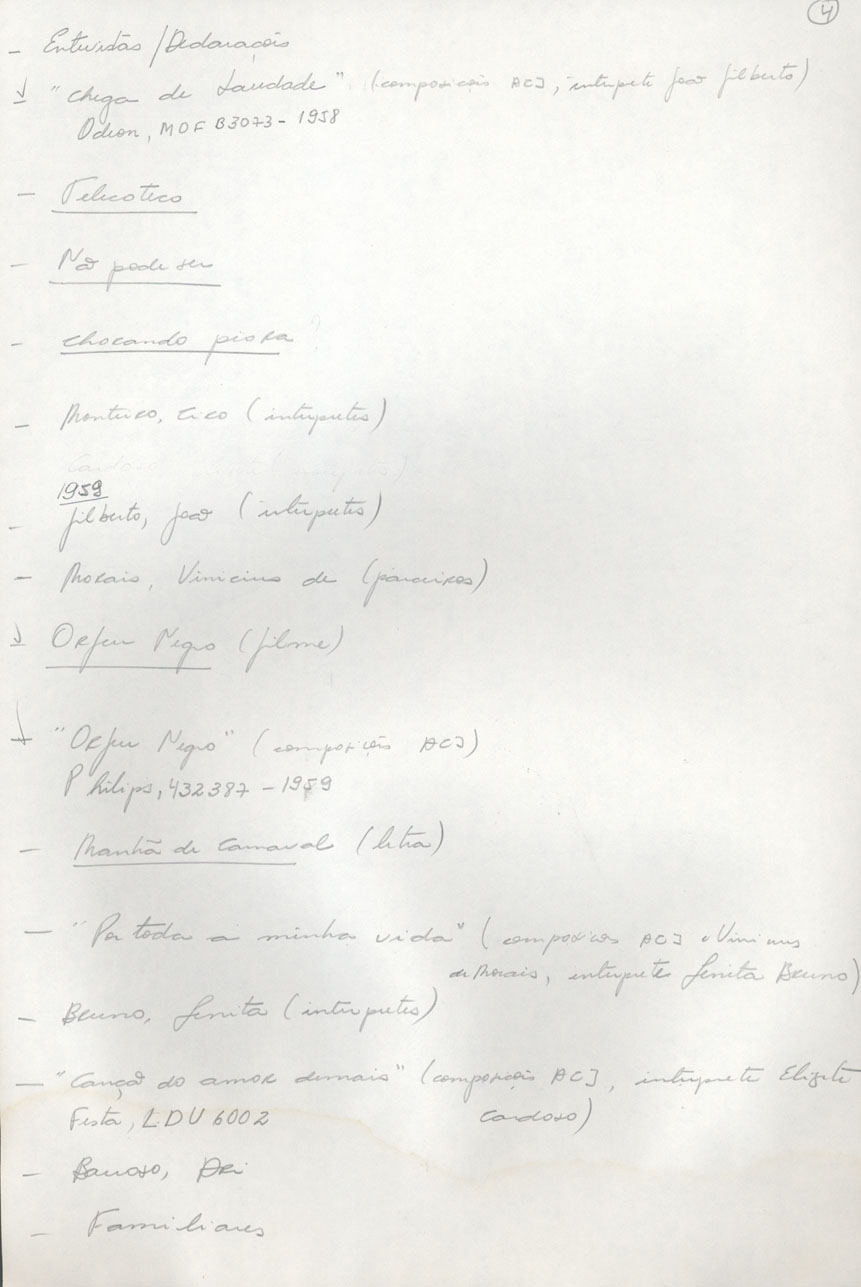 4
- Entrevistas / Declarações
"Chega de Saudade" (composições ACJ, intérprete João Gilberto)
Odeon, MOFB3073 - 1958
- Telecoteco
- Não pode ser
- Chorando piora ?
- Monteiro, Ciro (intérpretes)
Cardoso
1959
- Gilberto, João (intérpretes)
- Morais, Vinicius de (parceiros)
Orfeu Negro (filme)
"Orfeu Negro" (composições ACJ)
Philips, 432387 - 1959
- Manhã de Carnaval (letra)
- "Por toda a minha vida" (composições ACJ e Vinicius
de Morais, intérprete Lenita Bruno)
- Bruno, Lenita (intérpretes)
- "Canção do amor demais" (composições ACJ, intérprete Elizete
Festa, LDV 6002 Cardoso)
- Barroso, Ari
- Familiares